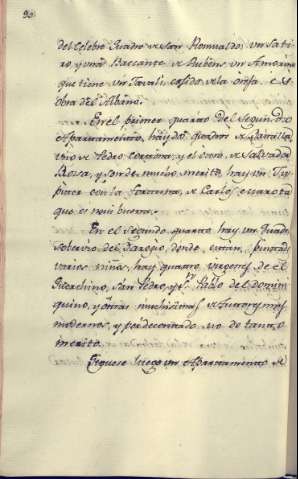 90.
del Celebre Quadro de San Romualdo, un Sati
ro, y unas Baccante de Rubens, un Amorino
que tiene un Javali, asido de la oreja. e es
obra del Albano.
En el primer quarto del segundo
Apartamento, hay dos quadros de Batalla
uno de Pedro Cortona, y el otro de Salvador
Rosa, y son de mucho merito, hay un Jup
piter con la fortuna, de Carlos Marota
que es mui buena.
En el segundo quarto hay un Quadro
soberbio del Caregio, donde estan, pintadas
varias niñas, hay quatro virgenes de el
Guerchino, San Pedro, y Sn. Pablo del Domin
quino, y otras muchisimas de Autores mas
modernos, y por de contado, no de tanto
merito.
Siguese luego un Apartamento de